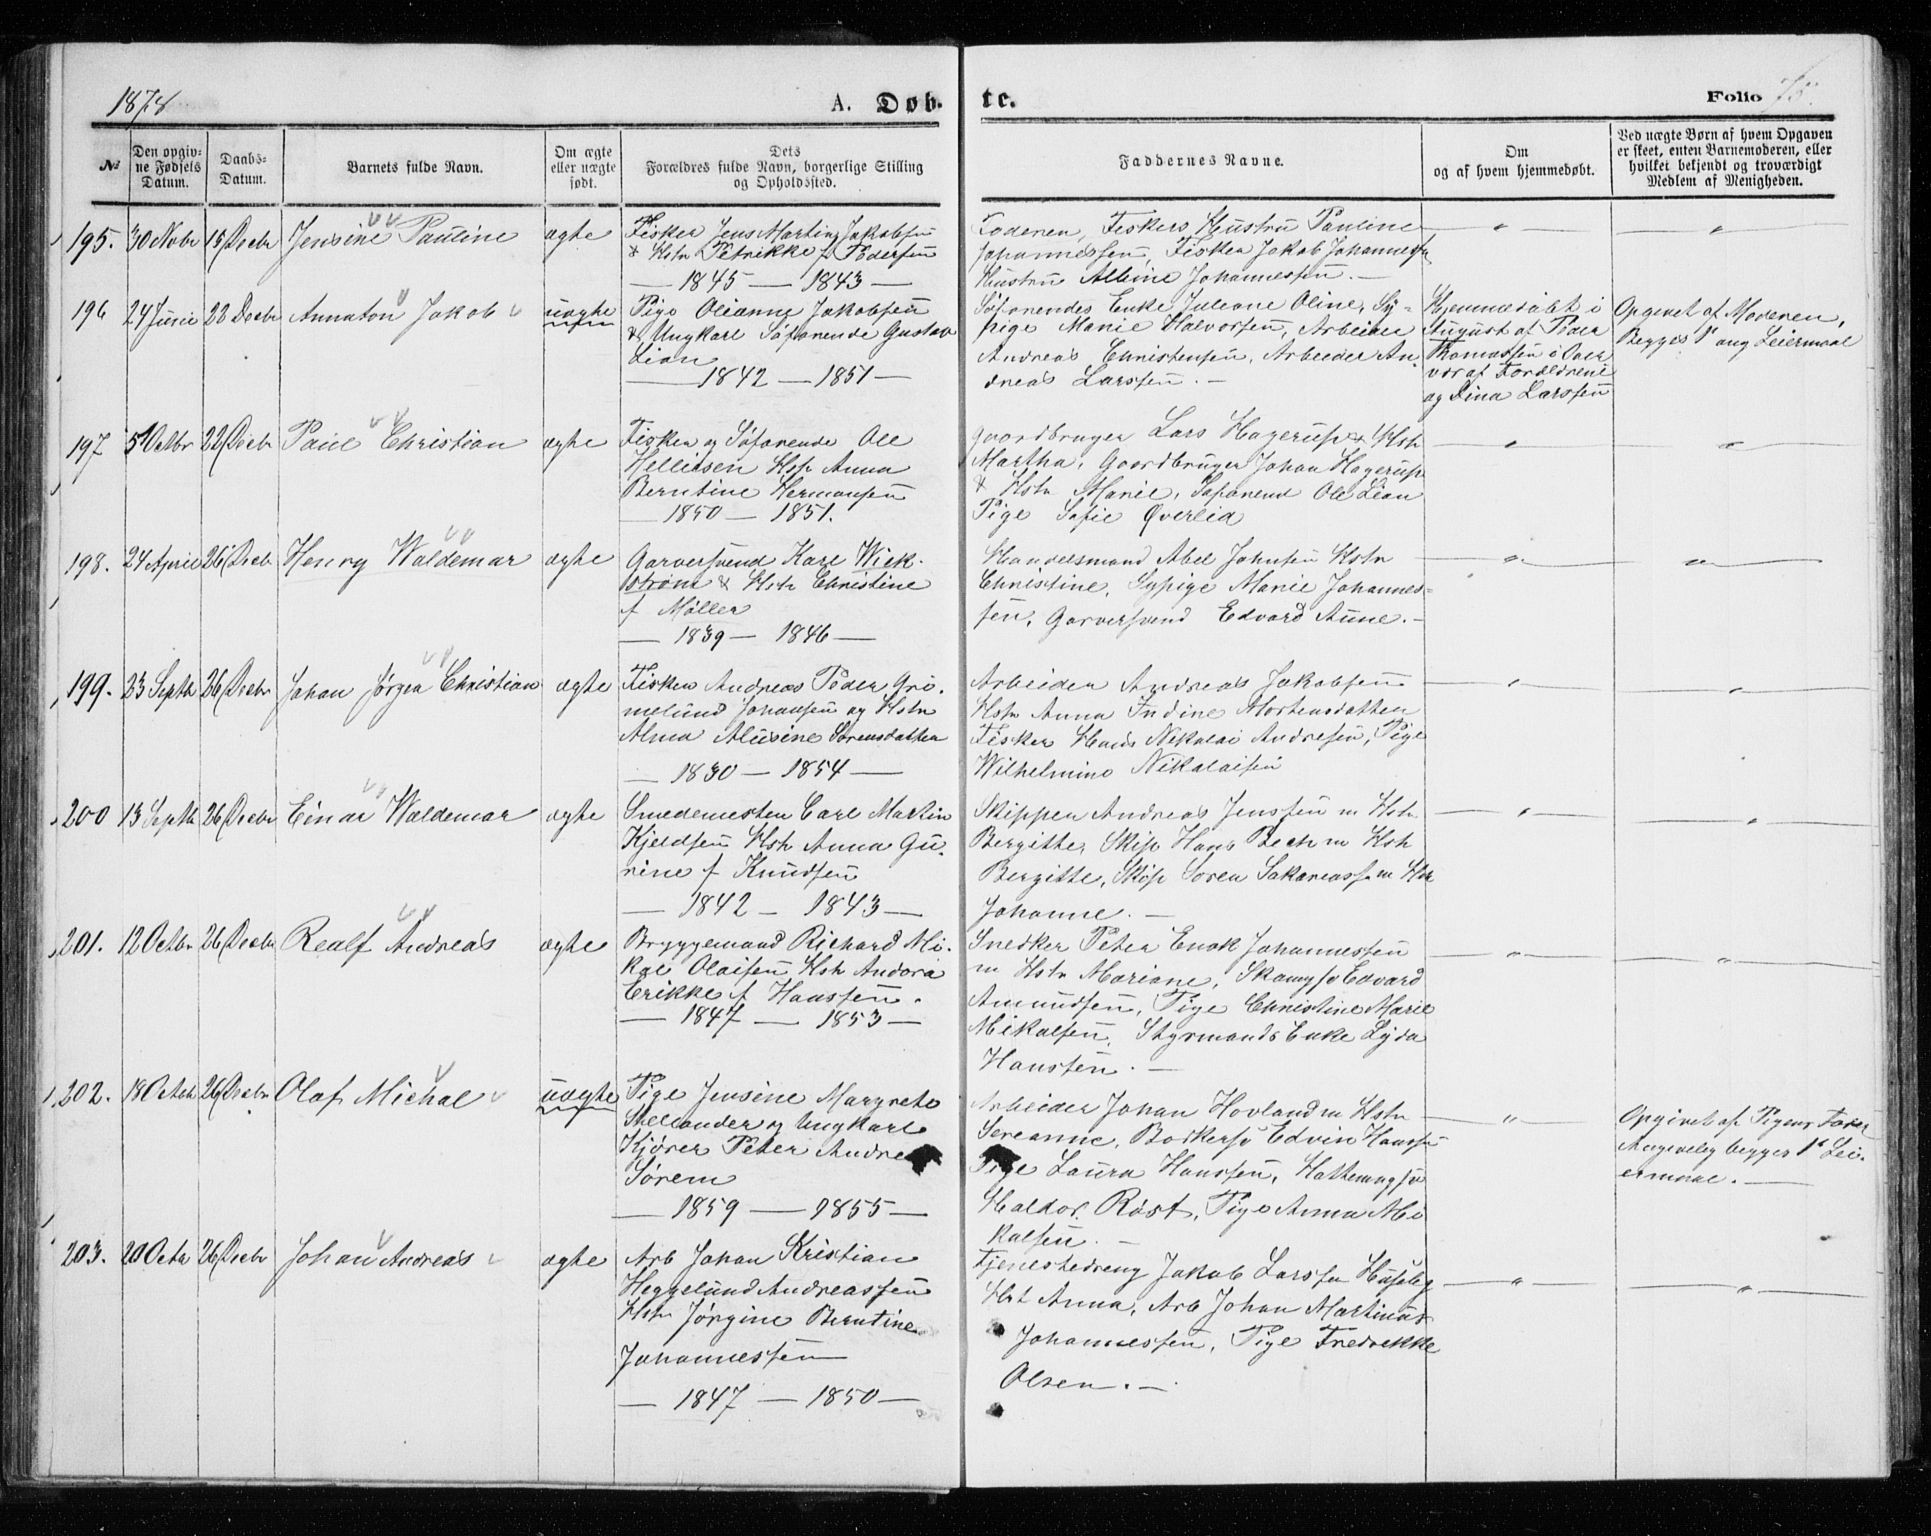 1878
A. Døb-
te.
Folio 75.
No
Den opgiv-
ne Fødsels
Datum.
Daabs-
Datum.
Barnets fulde Navn.
Om ægte
eller uægte
født.
Dets
Forældres fulde Navn, borgerlige Stilling
og Opholdssted.
Faddernes Navne.
Om
og af hvem hjemmedøbt.
Ved uægte Børn af hvem Opgaven
er skeet, enten Barnemoderen, eller
hvilket bekjendt og troværdigt
Medlem af Menigheden.
195. 30 Novbr 15 Decbr Jensine Pauline ægte
Fisker Jens Martin Jakobsen
& Hstr Petrikke f Pedersen
— 1845 — 1843 —
Foderen, Fiskers Hustru Pauline
Johannessen, Fisker Jakob Johannessen
Hustru Albine Johannessen. —
196 24 Juni 22 Decbr Annaton Jakob uægte
Pige Olianna Jakobsen
& Ungkarl Søfarende Gustav
Lian
— 1842 — 1851 —
Søfarendes Enke Juliane Oline, Sy-
pige Marie Halvorsen, Arbeider
Andreas Christensen, Arbeider An-
dreas Larssen. —
Hjemmedøbt i
August af Peder
Thomassen i
vær af Forældrene
og Dina Larssen
Opgivet af Moderen,
Begges 1ste ang Leiermaal
197 5 Octbr 22 Decbr Paul Christian ægte
Fisker og Søfarende Ole
Hellitsen Hstr Anna
Berntine Hermansen
— 1850 — 1851.
Gaardbruger Lars Hagerup & Hstr
Martha, Gaardbruger Johan Hagerup
& Hstr Marie, Søfarend Ole Lian
Pige Sofie Øverlid
198. 24 April 26 Decb Henry Waldemar ægte
Garversvend Karl Wick-
strøm & Hstr Christine
f Møller
— 1839 — 1846 —
Handelsmand Abel Johnsen Hstr
Christine, Sypige Marie Johannes-
sen, Garversvend Edvard Aune. —
199. 23 Septb 26 Decbr Johan Jørgen Christian ægte
Fisker Andreas Peder Gri-
melund Johansen og Hstr
Alma Alusine Sørensdatter
— 1830 — 1854 —
Arbeider Andreas Jakobsen
Hstr Anna Indine Mortensdatter
Fisker Hans Nikolai Andresen, Pige
Wilhelmine Nikolaisen
200 13 Septb 26 Decbr Einar Waldemar ægte
Smedemester Carl Martin
Kjeldsen Hstr Anna Gu-
rine f Knudsen
— 1842 — 1843 —
Skipper Andreas Jenssen m Hstr
Bergitte, Skip Hans Bech m Hstr
Bergitte, Skip Soren Sakariass. m Hstr
Johanne. —
201. 12 Octbr 26 Decbr Realf Andreas ægte
Bryggemand Richard Mi-
kal Olaisen Hstr Andora
Erikke f Hanssen.
— 1847 — 1853 —
Snedker Peter Enok Johannessen
m Hstr Mariane, Skomgsv Edvard
Amundsen, Pige Christine Marie
Mikalsen, Styrmands Enke Lyda
Hanssen. —
202. 18 Octbr 26 Decbr Olaf Michal uægte
Pige Jensine Margrete
Mellander og Ungkarl
Kjører Peter Andre
Sørem
— 1859 — 1855 —
Arbeider Johan Hovland m Hstr
Sereanne, Bødkersv Edvin Hanssen
Pige Laura Hanssen, Hattemagsv
Haldor Røst, Pige Anna Mi-
kalsen. —
Opgivet af Pigens Fader
Angivelig begges 1ste Lei-
ermaal. —
203. 20 Octbr 26 Decbr Johan Andreas ægte
Arb Johan Kristian
Heggelund Andreassen
Hstr Jørgine Berntine
Johannessen
— 1847 — 1850 —
Tjenestedreng Jakob Larssen Huseby
Hst Anna, Arb Johan Martinus
Johannessen, Pige Fredrikke
Olsen. —